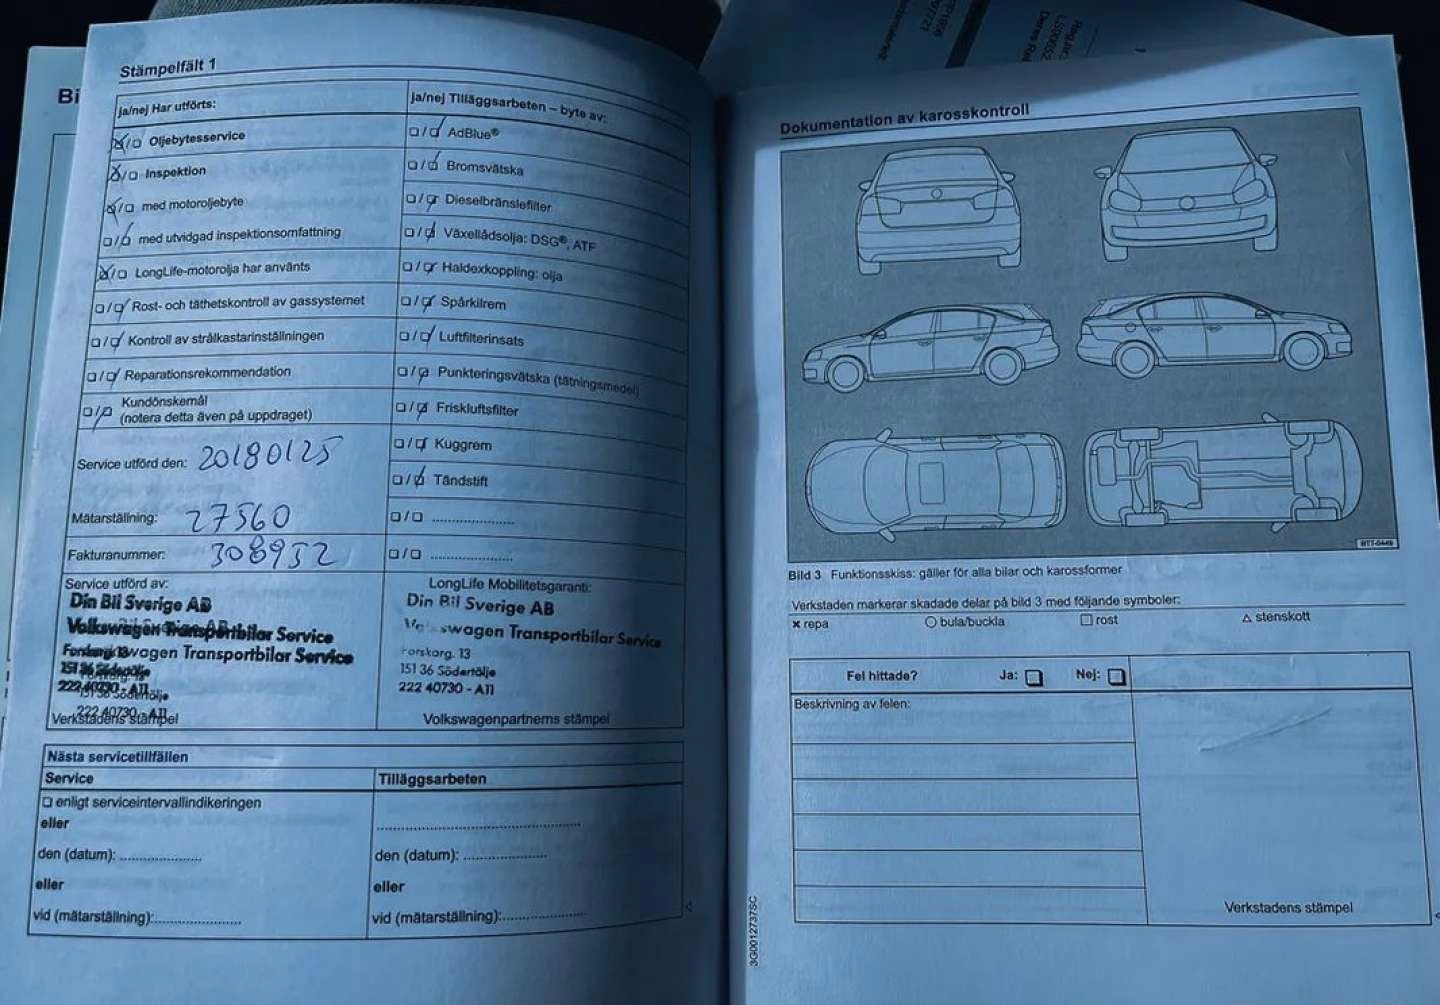 Bi
Stämpelfält 1
ja/nej Har utförts:
☒/☐ Oljebytesservice
☒/☐ Inspektion
☒/☐ med motoroljebyte
☐/☑ med utvidgad inspektionsomfattning
☒/☐ LongLife-motorolja har använts
☐/☑ Rost- och täthetskontroll av gassystemet
☐/☑ Kontroll av strålkastarinställningen
☐/☑ Reparationsrekommendation
☐/☑ Kundönskemål
(notera detta även på uppdraget)
Service utförd den: 20180125
Mätarställning: 27560
Fakturanummer: 308952
ja/nej Tilläggsarbeten – byte av:
☐/☑ AdBlue®
☐/☑ Bromsvätska
☐/☑ Dieselbränslefilter
☐/☑ Växellådsolja: DSG®, ATF
☐/☑ Haldexkoppling: olja
☐/☑ Spårkilrem
☐/☑ Luftfilterinsats
☐/☑ Punkteringsvätska (tätningsmedel)
☐/☑ Friskluftsfilter
☐/☑ Kuggrem
☐/☑ Tändstift
☐/☐ ....................
☐/☐ ....................
Service utförd av:
Din Bil Sverige AB
Volkswagen Transportbilar Service
Volkswagen Transportbilar Service
Forskarg. 13
151 36 Södertälje
151 36 Södertälje
222 40730 - A11
222 40730 - A11
Verkstadens stämpel
LongLife Mobilitetsgaranti:
Din Bil Sverige AB
Volkswagen Transportbilar Service
Forskarg. 13
151 36 Södertälje
222 40730 - A11
Volkswagenpartnerns stämpel
Nästa servicetillfällen
Service
☐ enligt serviceintervallindikeringen
eller
den (datum): ....................
eller
vid (mätarställning):....................
Tilläggsarbeten
....................
den (datum): ....................
eller
vid (mätarställning):....................
Dokumentation av karosskontroll
BTT-0449
Bild 3 Funktionsskiss: gäller för alla bilar och karossformer
Verkstaden markerar skadade delar på bild 3 med följande symboler:
× repa ○ bula/buckla □ rost △ stenskott
Fel hittade? Ja: ☐ Nej: ☐
Beskrivning av felen:
Verkstadens stämpel
3G0012737SC